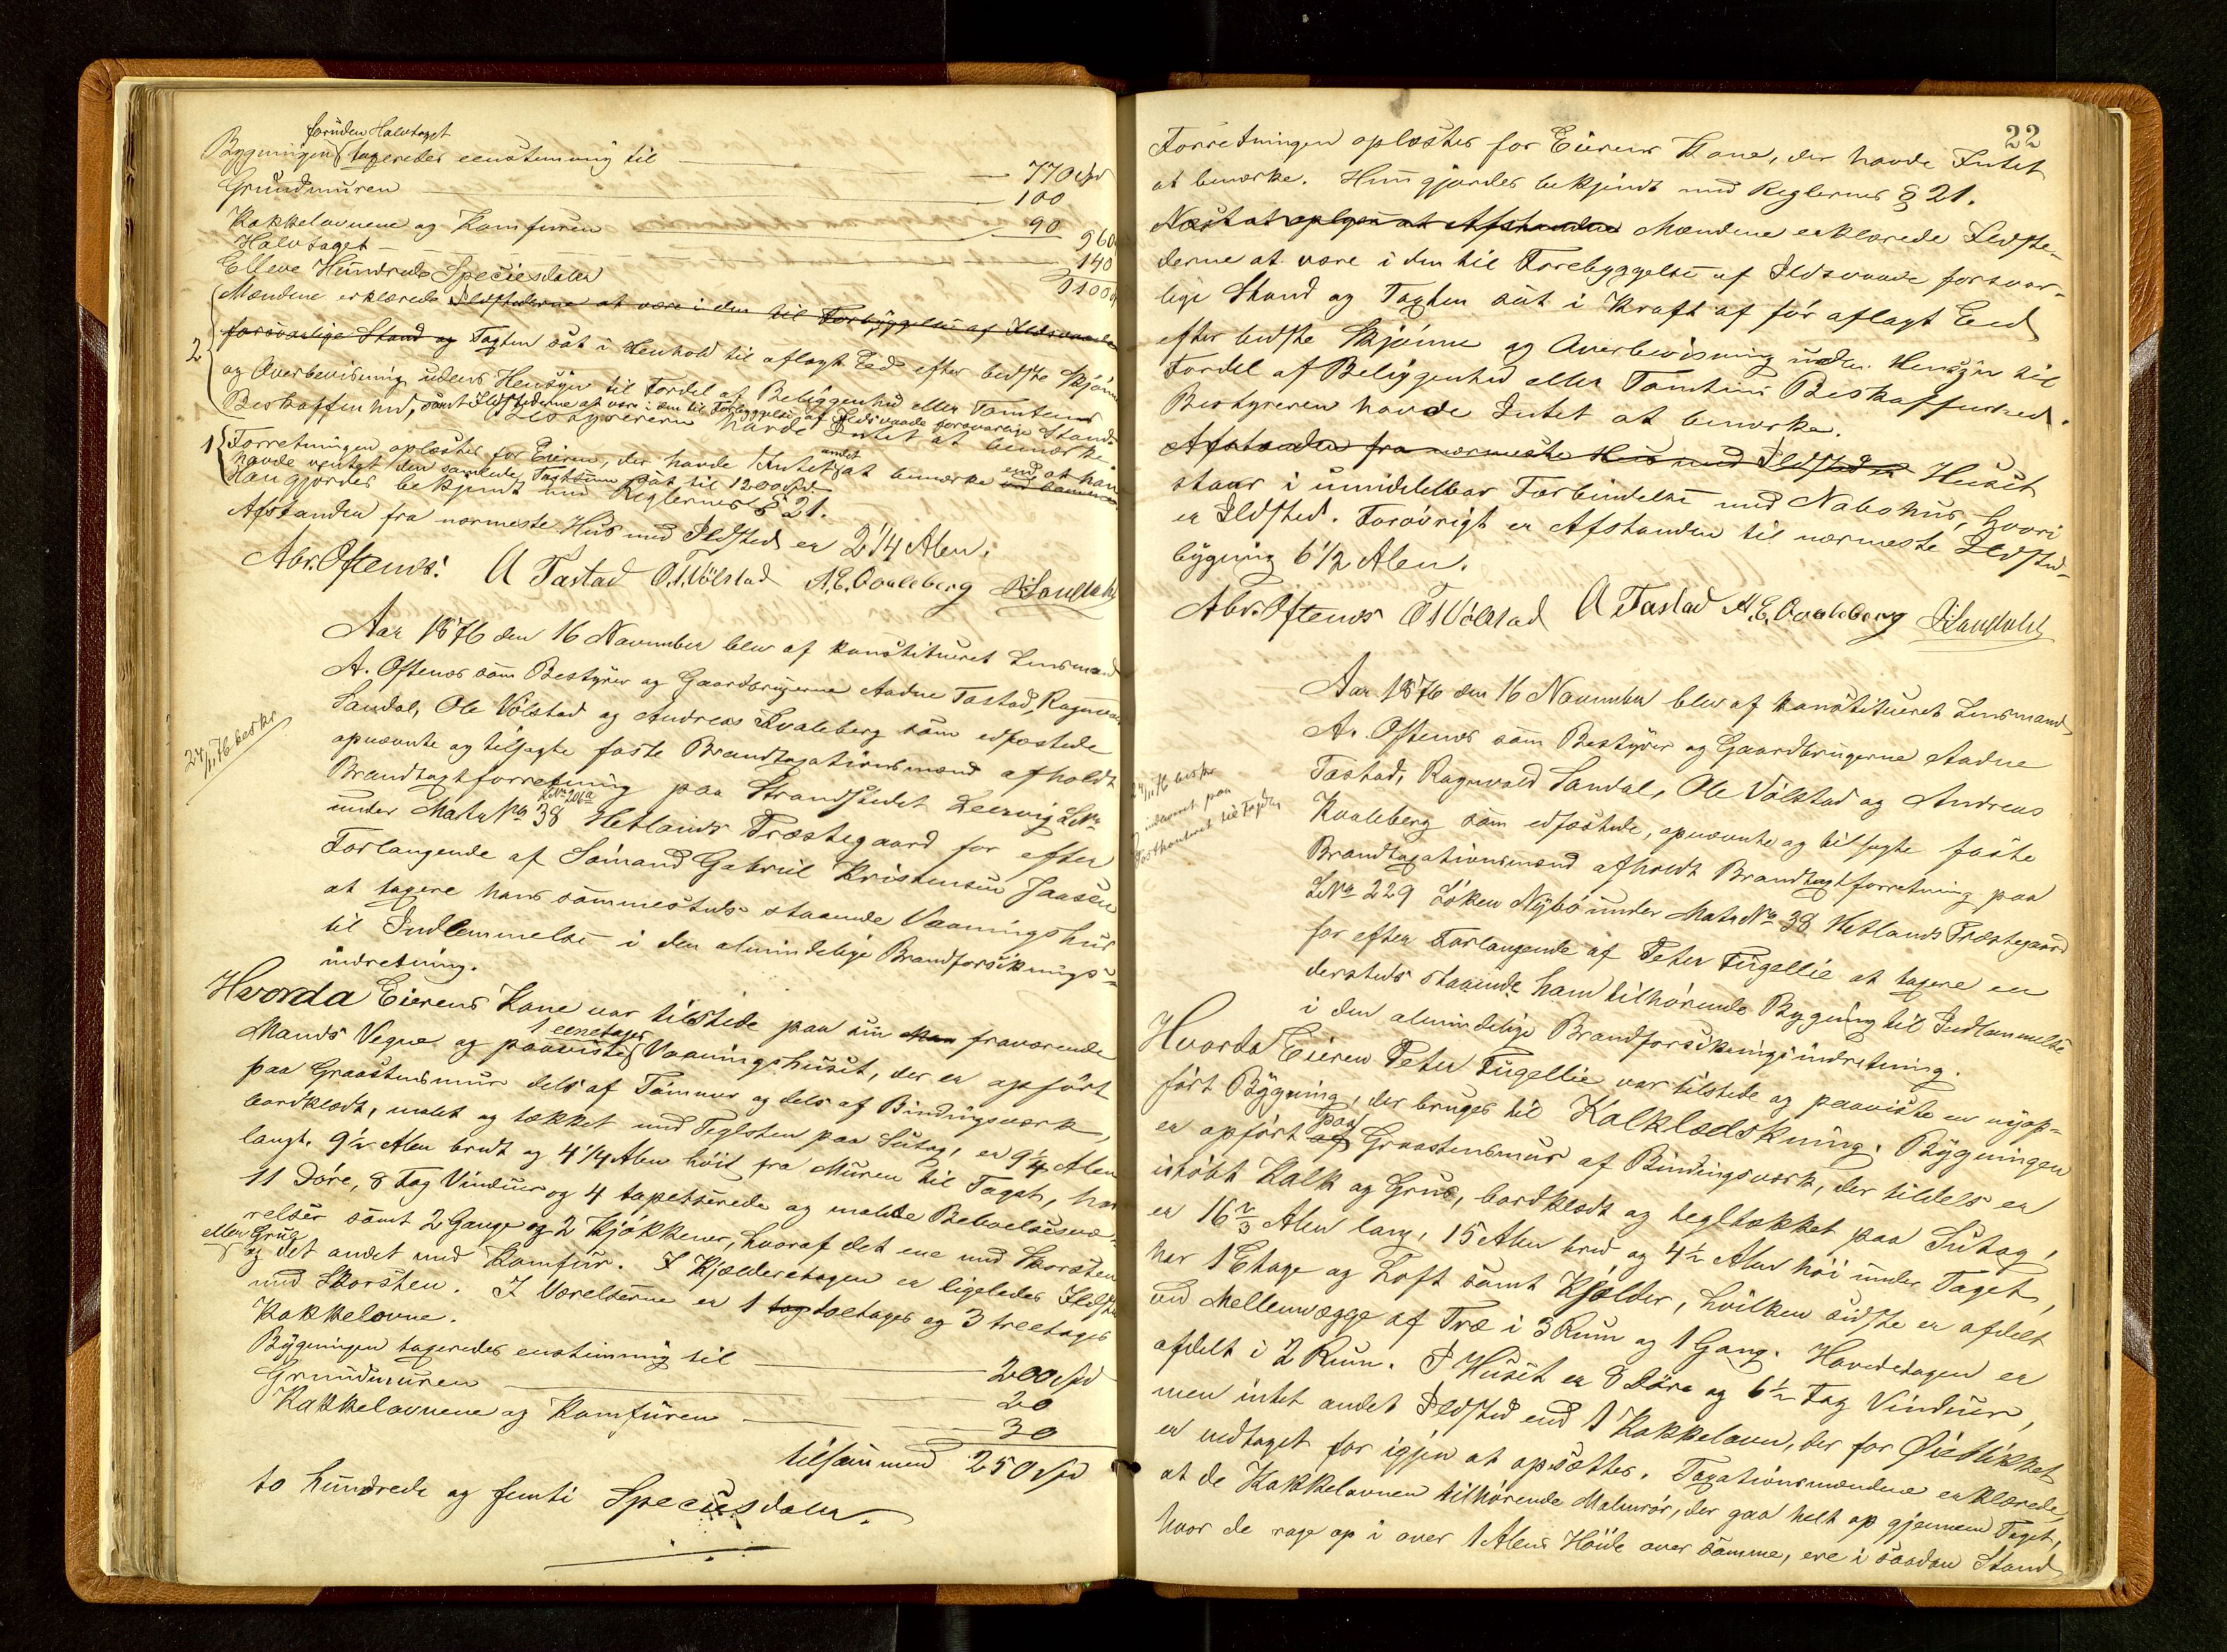 foruden Halvtaget
Bygningen taxeredes eenstemmig til 770 Spd
Grundmuren 100
Kakkelovnene og Komfuren 90 960
Halvtaget 140
Elleve Hundrede Speciesdaler 1100
Mændene erklærede Ildstederne at være i den til Forbyggelse af Ildsvaade
2 forsvarlige Stand og Taxten sat i Henhold til aflagt Eed efter bedste Skjønn
og Overbevisning uden Hensyn til Fordel af Beliggenhed eller Tomtens
Beskaffenhed, samt Ildstederne at være i den til Forbyggelse af Ildsvaade forsvarlige Stand.
Bestyreren havde Intet at bemærke
1 Forretningen oplæstes for Eieren, der havde Intet andet at bemærke end at han
havde ventet den samlede Taxtsum sat til 1200 Spd.
Han gjordes bekjendt med Reglernes § 21.
Afstanden fra nærmeste Hus med Ildsted er 2 1/4 Alen.
Abr. Oftenæs. A Tastad O. T. Völstad A. E. Qvaleberg R Sandal
Aar 1876 den 16 November blev af konstitueret Lensmand
A. Oftenæs som Bestyrer og Gaardbrugerne Aadne Tastad, Ragnvald
Sandal, Ole Völstad og Andreas Kvaleberg som edfæstede
opnævnte og tilsagte faste Brandtaxationsmænd afholdt
24/11 76 beskr
Brandtaxtforretning paa Strandstedet Leervig LNr
LNr 206a
under Matr No 38 Hetlands Præstegaard for efter
Forlangende af Sømand Gabriel Kristensen Jaasen
at taxere hans sammesteds staaende Vaaningshus
til Indlemmelse i den almindelige Brandforsikrings-
indretning.
Hvorda Eierens Kone var tilstede paa sin Man fraværende
Mands Vegne og paaviste 1 eenetages Vaaningshuset, der er opført
paa Graastensmur dels af Tømmer og dels af Bindingsværk,
bordklædt, malet og tækket med Teglsten paa Sutag, er 9 1/4 Alen
langt, 9 1/2 Alen bredt og 4 1/4 Alen höit fra Muren til Taget, har
11 Döre, 8 Fag Vinduer og 4 tapetserede og malede Beboelsesvæ-
relser samt 2 Gange og 2 Kjökkener, hvoraf det ene med Skorsten
eller Grue
og det andet med Komfur. I Kjælderetagen er ligeledes Ildsted
med Skorsten. I Værelserne er 1 tog toetages og 3 treetages
Kakkelovne.
Bygningen taxeredes enstemmig til 200 Spd
Grundmuren 20
Kakkelovnene og Komfuren 30
tilsammen 250 Spd
to hundrede og femti Speciesdaler.
22
Forretningen oplæstes for Eierens Kone, der havde Intet
at bemærke. Hun gjordes bekjendt med Reglernes § 21.
Mændene erklærede Ildste-
derne at være i den til Forebyggelse af Ildsvaade forsvar-
lige Stand og Taxten sat i Kraft af før aflagt Eed
efter bedste Skjønne og Overbevisning uden Hensyn til
Fordel af Beliggenhed eller Tomtens Beskaffenhed.
Bestyreren havde Intet at bemærke.
Afstanden fra nærmeste Hus med Ildsted er Huset
staar i umiddelbar Forbindelse med Nabohus, hvori
er Ildsted. Forövrigt er Afstanden til nærmeste Ildsted-
bygning 6 1/2 Alen.
Abr. Oftenæs O T Völstad A Tastad A. E. Qvaleberg R Sandal
Aar 1876 den 16 November blev af konstitueret Lensmand
A. Oftenæs som Bestyrer og Gaardbrugerne Aadne
Tastad, Ragnvald Sandal, Ole Völstad og Andreas
24/11 76 beskr
paa
Kvaleberg som edfæstede, opnævnte og tilsagte faste
Brandtaxationsmænd afholdt Brandtaxtforretning paa
LNo 229 Løken Nybö under Matr No 38 Hetlands Præstegaard
for efter Forlangende af Peter Fugellie at taxere en
dersteds staaende ham tilhörende Bygning til Indlemmelse
i den almindelige Brandforsikringsindretning.
Hvorda Eieren Peter Fugellie var tilstede og paaviste en nyop-
ført Bygning, der bruges til Kalkledskning. Bygningen
er opført paa Graastensmur af Bindingsværk, der tildels er
istöbt Kalk og Grus, bordklædt og tegltækket paa Sutag,
er 16 2/3 Alen lang, 15 Alen bred og 4 1/2 Alen höi under Taget,
har 1 Etage og Loft samt Kjælder, hvilken sidste er afdelt
ved Mellemvægge af Træ i 3 Rum og 1 Gang. Hovedetagen er
afdelt i 2 Rum. I Huset er 8 Döre og 6 1/2 Fag Vinduer,
men intet andet Ildsted end 1 Kakkelovn, der for Øieblikket
er nedtaget for igjen at opsættes. Taxationsmændene erklærede,
at de Kakkelovnen tilhörende Malmrör, der gaa helt op gjennem Taget,
hvor de rage op i over 1 Alens Höide over samme, ere i saadan Stand